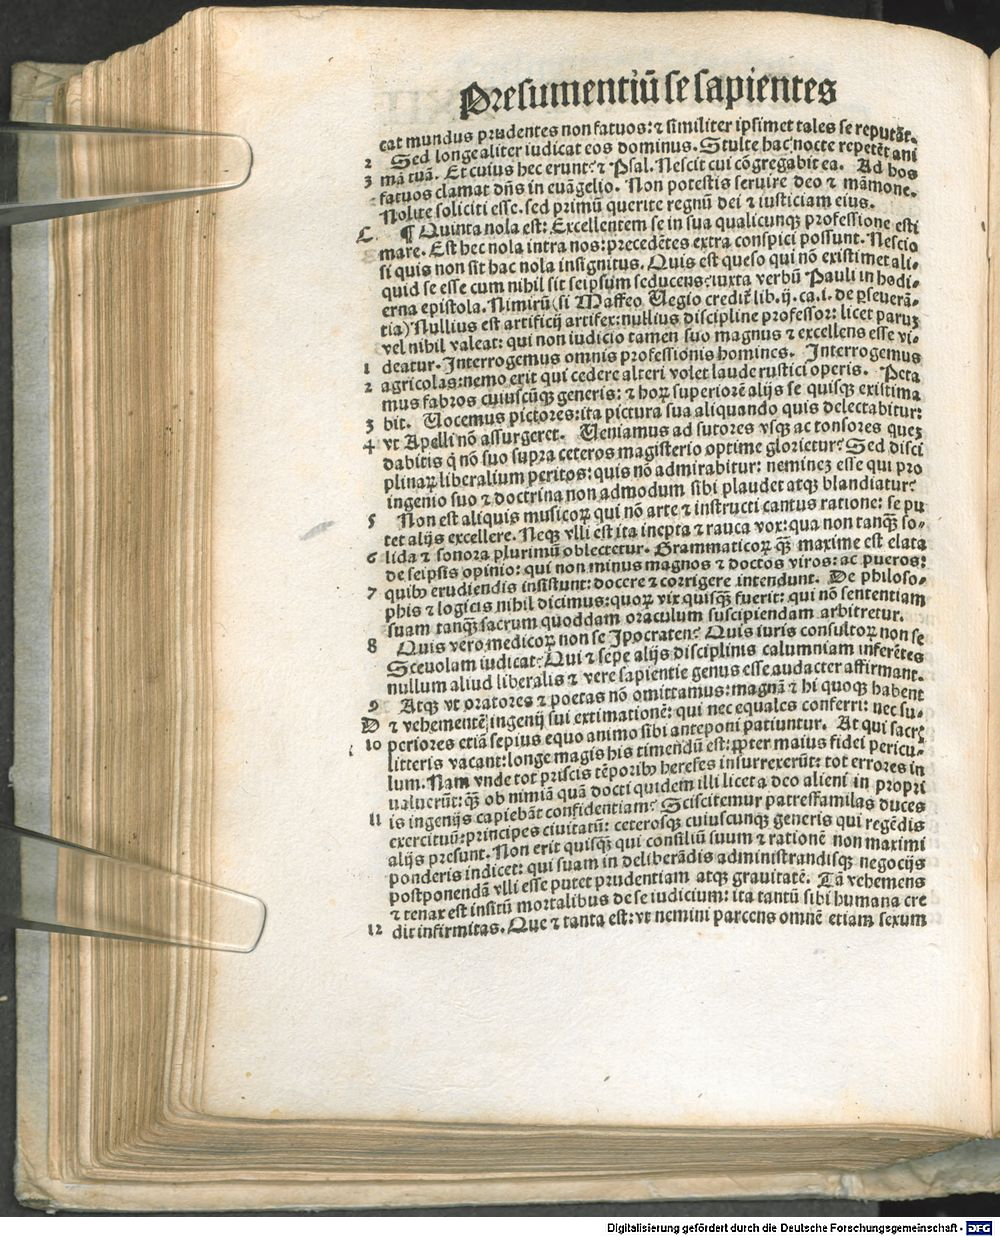 Presumentiū se sapientes
eat mundus prudentes non fatuos: ⁊ similiter ipsimet tales se reputāt.
2 Sed longe aliter iudicat eos dominus. Stulte hac nocte repetēt ani
3 mā tuā. Et cuius hec erunt: ⁊ Psal. Nescit cui cōgregabit ea. Ad hos
fatuos clamat dn̄s in euāgelio. Non potestis seruire deo ⁊ māmone.
Nolite soliciti esse. sed primū querite regnū dei ⁊ iusticiam eius.
C. ¶ Quinta nola est: Excellentem se in sua qualicunqꝫ professione esti
mare. Est hec nola intra nos: precedētes extra conspici possunt. Nescio
si quis non sit hac nola insignitus. Quis est queso qui nō existimet ali-
quid se esse cum nihil sit seipsum seducens: iuxta verbū Pauli in hodi-
erna epistola. Nimirū (si Maffeo Uegio credit̄ lib. ij. ca. i. de ꝑseuerā-
tia) Nullius est artificij artifex: nullius discipline professor: licet paruꝫ
vel nihil valeat: qui non iudicio tamen suo magnus ⁊ excellens esse vi-
deatur. Interrogemus omnis professionis homines. Interrogemus
1 agricolas: nemo erit qui cedere alteri volet laude rustici operis. Peta
2 mus fabros cuiuscūqꝫ generis: ⁊ hoꝝ superiorē alijs se quisqꝫ existima
3 bit. Uocemus pictores: ita pictura sua aliquando quis delectabitur:
4 vt Apelli nō assurgeret. Ueniamus ad sutores vsqꝫ ac tonsores queꝫ
dabitis q̄ nō suo supra ceteros magisterio optime glorietur? Sed disci
plinaꝝ liberalium peritos: quis nō admirabitur: nemineꝫ esse qui pro
ingenio suo ⁊ doctrina non admodum sibi plaudet atqꝫ blandiatur?
5 Non est aliquis musicoꝝ qui nō arte ⁊ instructi cantus ratione: se pu
tet alijs excellere. Neqꝫ vlli est ita inepta ⁊ rauca vox: qua non tanqꝫ̄ so-
6 lida ⁊ sonora plurimū oblectetur. Grammaticoꝝ qꝫ̄ maxime est elata
de seipsis opinio: qui non minus magnos ⁊ doctos viros: ac pueros:
7 quibꝰ erudiendis insistunt: docere ⁊ corrigere intendunt. De philoso-
phis ⁊ logicis nihil dicimus: quoꝝ vix quisqꝫ̄ fuerit: qui nō sententiam
suam tanqꝫ̄ sacrum quoddam oraculum suscipiendam arbitretur.
8 Quis vero medicoꝝ non se Ipocraten? Quis iuris consultoꝝ non se
Sceuolam iudicat? Qui ⁊ sepe alijs disciplinis calumniam inferētes
nullum aliud liberalis ⁊ vere sapientie genus esse audacter affirmant.
9 Atqꝫ vt oratores ⁊ poetas nō omittamus: magnā ⁊ hi quoqꝫ habent
D ⁊ vehementē ingenij sui extimationē: qui nec equales conferri: nec su-
10 periores etiā sepius equo animo sibi anteponi patiuntur. At qui sacrꝭ
litteris vacant: longe magis his timendū est: ꝓpter maius fidei pericu-
lum. Nam vnde tot priscis tēporibꝰ hereses insurrexerūt: tot errores in
ualuerūt: qꝫ̄ ob nimiā quā docti quidem illi licet a deo alieni in propri
11 is ingenijs capiebāt confidentiam? Sciscitemur patresfamilas duces
exercituū: principes ciuitatū: ceterosqꝫ cuiuscunqꝫ generis qui regēdis
alijs presunt. Non erit quisqꝫ qui consiliū suum ⁊ rationē non maximi
ponderis indicet: qui suam in deliberādis administrandisqꝫ negocijs
postponendā vlli esse putet prudentiam atqꝫ grauitatē. Tā vehemens
⁊ tenax est insitū mortalibus de se iudicium: ita tantū sibi humana cre
12 dit infirmitas. Que ⁊ tanta est: vt nemini parcens omnē etiam sexum
Digitalisierung gefördert durch die Deutsche Forschungsgemeinschaft - DFG